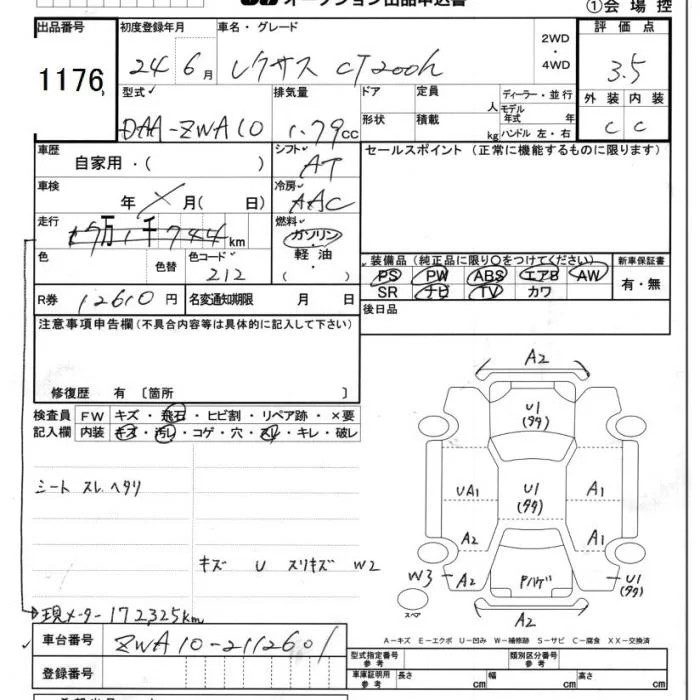 オークション出品申込書
①会 場 控
出品番号
1176
初度登録年月
24 6 月
車名・グレード
レクサス CT200h
2WD
・
4WD
評 価 点
3.5
型式
DAA-ZWA10
排気量
1.79 cc
ドア
形状
定員
人
積載
kg
ディーラー・並 行
モデル
年式 年
ハンドル 左・右
外 装
C
内 装
C
車歴
自家用・( )
シフト
AT
セールスポイント(正常に機能するものに限ります)
車検
年 × 月( 日)
冷房
AAC
走行
万 千 744 km
燃料
ガソリン
・
軽 油
・
( )
色
色替
色コード
212
装備品(純正品に限り○をつけてください)
PS PW ABS エアB AW
SR ナビ TV カワ
新車保証書
有・無
R券
12610 円
名変通知期限 月 日
後日品
注意事項申告欄(不具合内容等は具体的に記入して下さい)
修復歴 有 〔箇所 〕
検査員
記入欄
FW キズ・飛石・ヒビ割・リペア跡・×要
内装 キズ・汚レ・コゲ・穴・スレ・キレ・破レ
シート スレ ヘタリ
キズ U スリキズ W2
A2
U1
(タタ)
UA1
U1
(タタ)
A1
A2
A1
W3
A2
U1
(タタ)
A2
スペア
現メーター 172325km
A-キズ E-エクボ U-凹み W-補修跡 S-サビ C-腐食 XX-交換済
車台番号
ZWA10-2112601
登録番号
型式指定番号
参 考
類別区分番号
参 考
車庫証明用
参 考
長さ
cm
幅
cm
高さ
cm